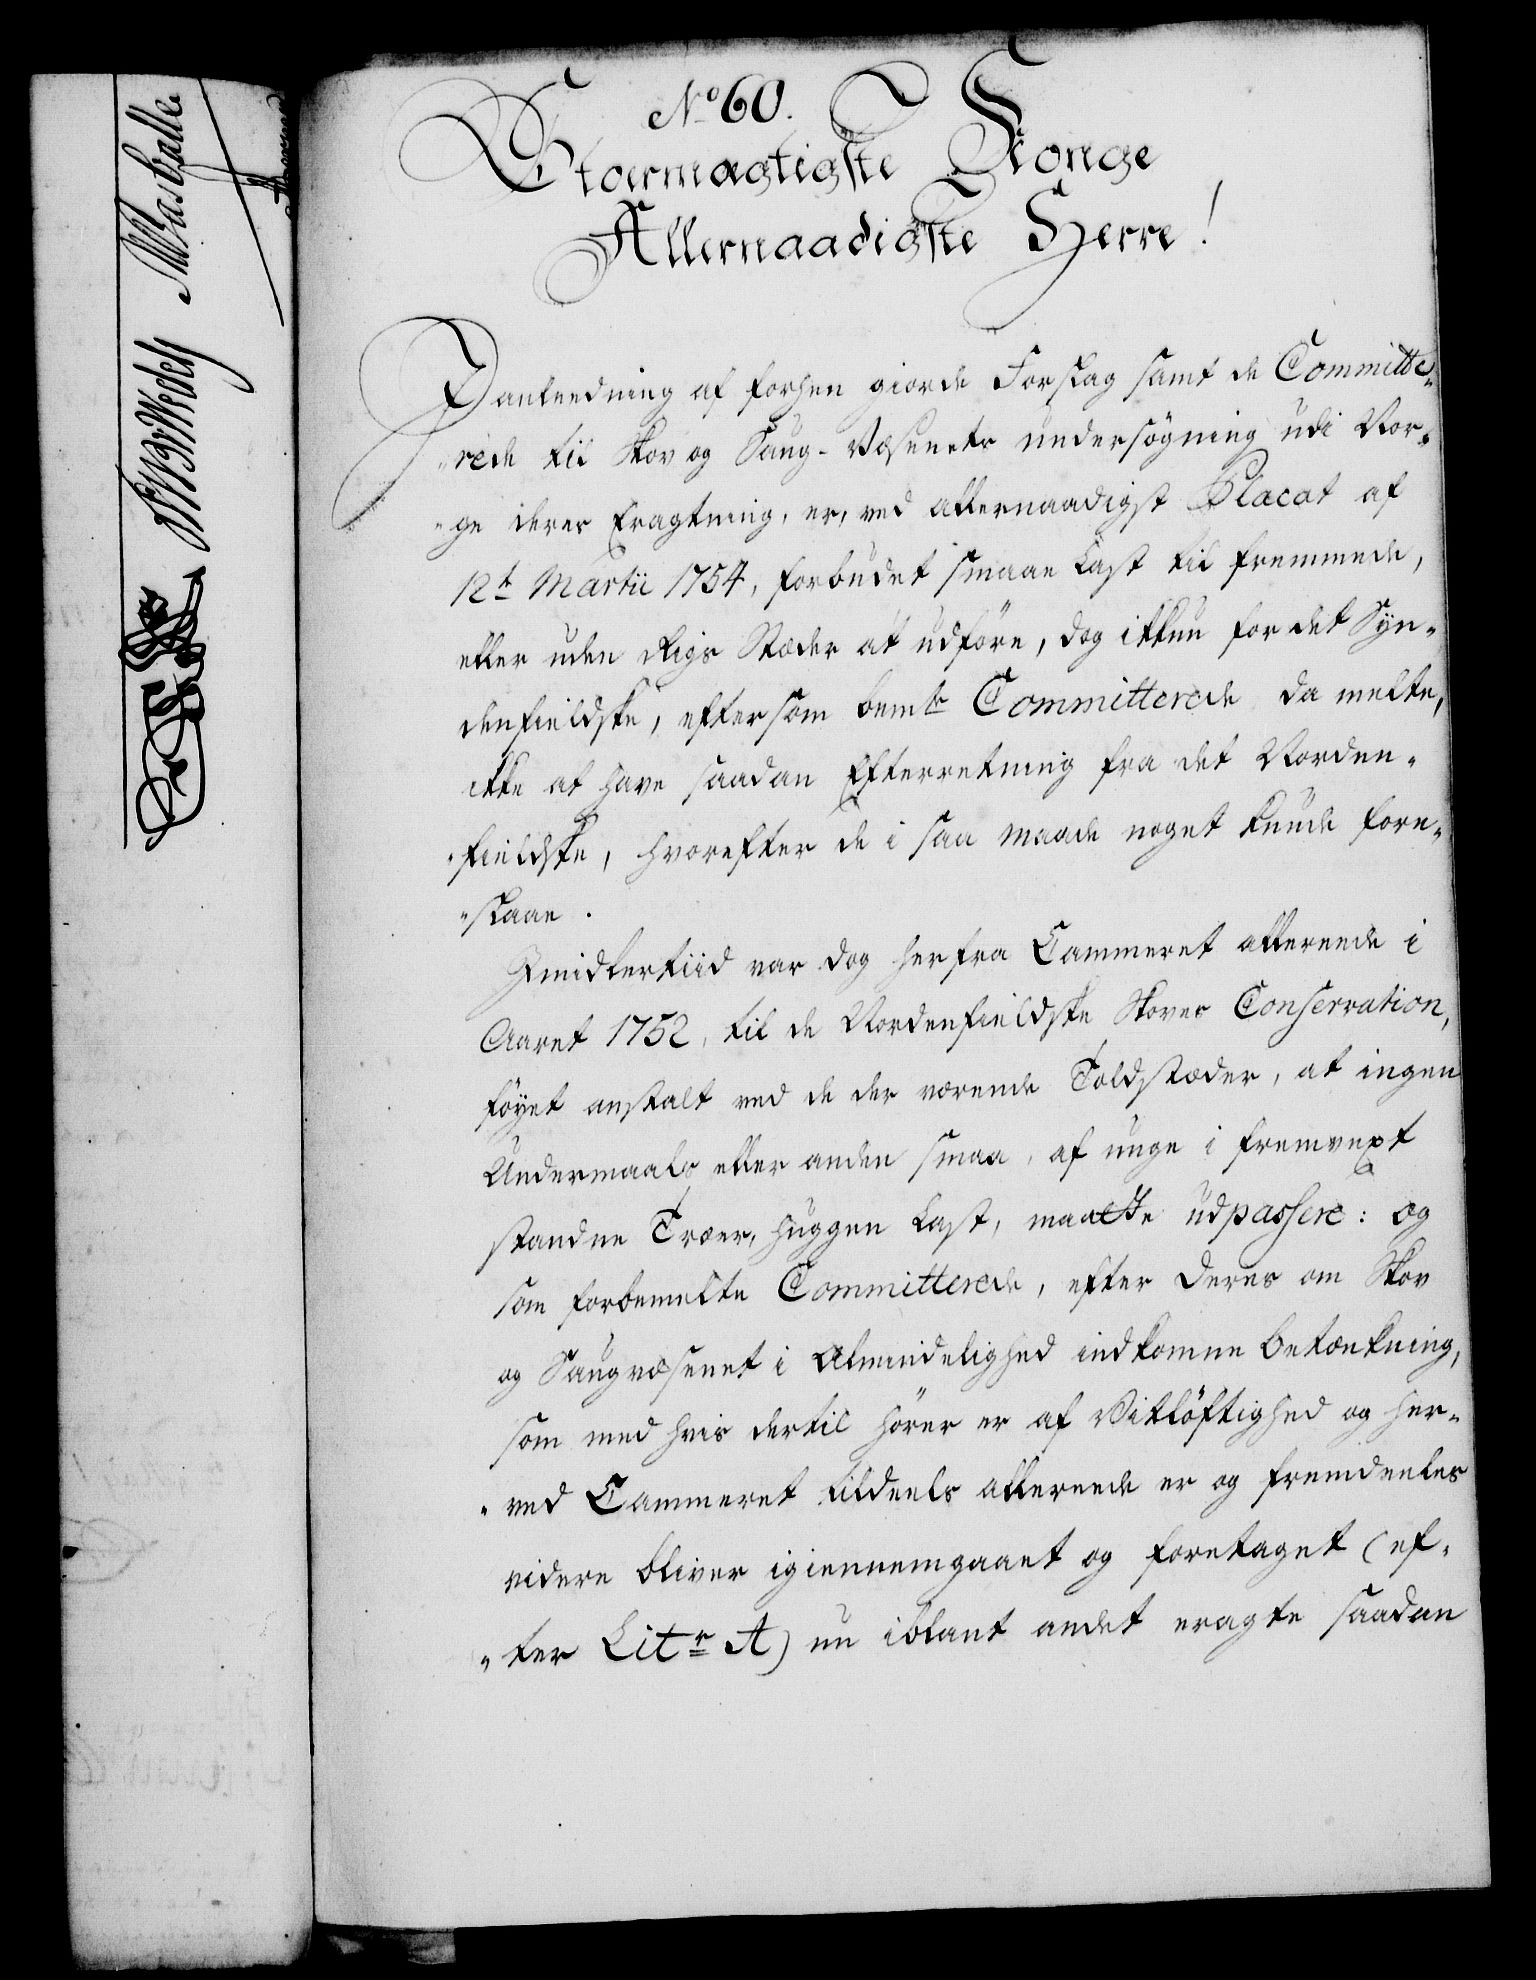 No 60.
Stormægtigste Konge
Allernaadigste Herre!
I anleedning af forhen giorde Forslag samt de Committe-
rede til Skov og Saug-Væsenets undersögning udi Nor-
ge deres Eragtning, er, ved allernaadigst Placat af
12t Martii 1754, forbudet smaae Last til fremmede,
eller uden Rigs Stæder at udföre, dog ikkun for det Syn-
denfieldske, eftersom bemte Committerede da melte,
ikke at have saadan Efterretning fra det Norden-
fieldske, hvorefter de i saa maade noget kunde fore-
slaae.
Imidlertiid var dog her fra Cammeret allereede i
Aaret 1752, til de Nordenfieldske Skoves Conservation,
föyet anstalt ved de der værende Toldstæder, at ingen
Undermaals eller anden smaa, af unge i fremvext
standne Træer, huggen Last, maatte udpassere: og
som forbemelte Committerede, efter deres om Skov
og Saugvæsenet i Almindelighed indkomne Betænkning,
som med hvis dertil hörer er af Vitlöftighed og her-
ved Cammeret tildeels allereede er og fremdeeles
videre bliver igiennemgaaet og foretaget (ef-
ter Litr A) nu iblant andet eragte saadan